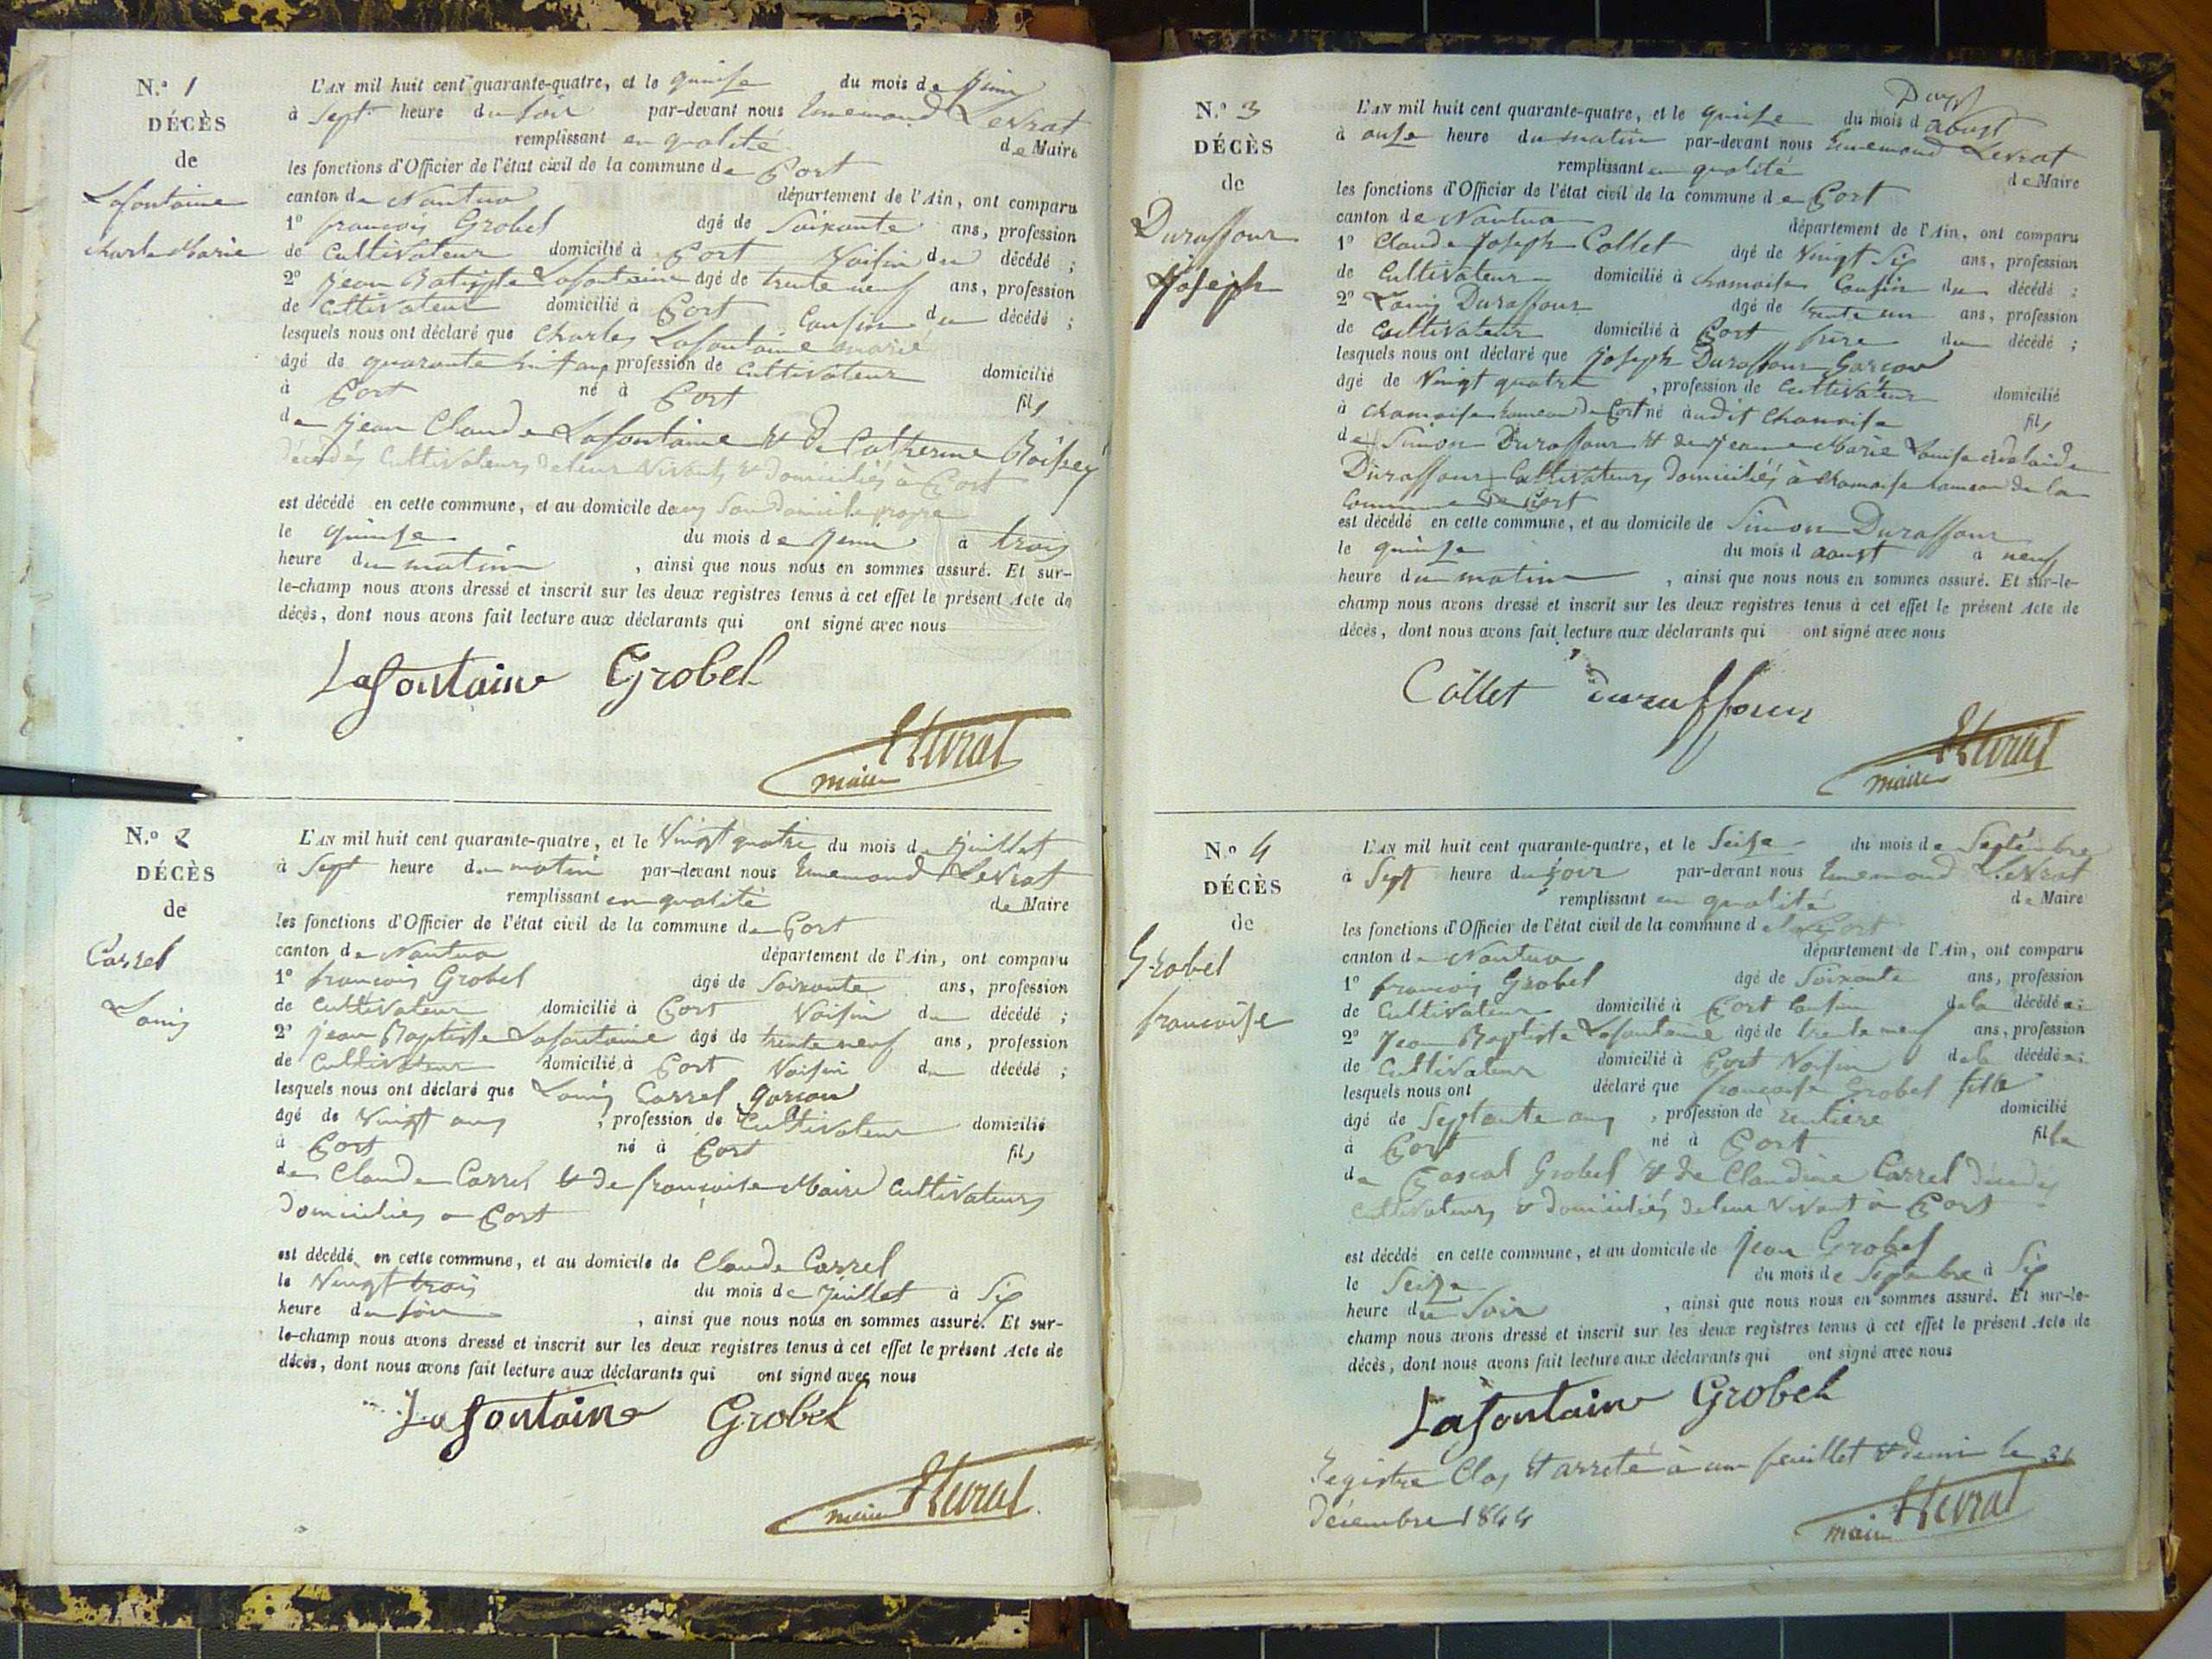 N.º 1
DÉCÈS
de
Lafontaine
Charle Marie
L'AN mil huit cent quarante-quatre, et le quinse du mois de Juin
à Sept heure du soir par-devant nous Ennemond Levrat
remplissant en qualité de Maire
les fonctions d'Officier de l'état civil de la commune de Port
canton de Nantua département de l'Ain, ont comparu
1º francois Grobel âgé de Soixante ans, profession
de Cultivateur domicilié à Port Voisin du décédé ;
2º Jean Batiste Lafontaine âgé de trente neuf ans, profession
de Cultivateur domicilié à Port Cousin du décédé ;
lesquels nous ont déclaré que Charles Lafontaine marié
âgé de quarante huit ans profession de Cultivateur domicilié
à Port né à Port fils
de Jean Claude Lafontaine et de Catherine
décédés Cultivateurs de leur Vivant, & domiciliés à Port
est décédé en cette commune, et au domicile de son domicile propre
le quinse du mois de Juin à trois
heure du matin , ainsi que nous nous en sommes assuré. Et sur-
le-champ nous avons dressé et inscrit sur les deux registres tenus à cet effet le présent Acte de
décès, dont nous avons fait lecture aux déclarants qui ont signé avec nous
Lafontaine Grobel
ELevrat
maire
N.º 2
DÉCÈS
de
Carrel
Louis
L'AN mil huit cent quarante-quatre, et le Vingt quatre du mois de Juillet
à Sept heure du matin par-devant nous Ennemond Levrat
remplissant en qualité de Maire
les fonctions d'Officier de l'état civil de la commune de Port
canton de Nantua département de l'Ain, ont comparu
1º francois Grobel âgé de Soixante ans, profession
de Cultivateur domicilié à Port Voisin du décédé ;
2º Jean Baptiste Lafontaine âgé de trente neuf ans, profession
de Cultivateur domicilié à Port Voisin du décédé ;
lesquels nous ont déclaré que Louis Carrel garcon
âgé de Vingt ans , profession de Cultivateur domicilié
à Port né à Port fils
de Claude Carrel & de francoise Maire Cultivateurs
domiciliés a Port
est décédé en cette commune, et au domicile de Claude Carrel
le Vingt trois du mois de Juillet à Six
heure du soir , ainsi que nous nous en sommes assuré. Et sur-
le-champ nous avons dressé et inscrit sur les deux registres tenus à cet effet le présent Acte de
décès, dont nous avons fait lecture aux déclarants qui ont signé avec nous
Lafontaine Grobel
maire ELevrat
N.º 3
DÉCÈS
de
Duraffour
Joseph
L'AN mil huit cent quarante-quatre, et le quinse du mois d aoust
à onse heure du matin par-devant nous Ennemond Levrat
remplissant en qualité de Maire
les fonctions d'Officier de l'état civil de la commune de Port
canton de Nantua département de l'Ain, ont comparu
1º Claude Joseph Collet âgé de Vingt Six ans, profession
de Cultivateur domicilié à chamoise Cousin du décédé ;
2º Louis Duraffour âgé de trente un ans, profession
de Cultivateur domicilié à Port frère du décédé ;
lesquels nous ont déclaré que Joseph Duraffour Garcon
âgé de Vingt quatre , profession de Cultivateur domicilié
à chamoise hameau de Port né à udit Chamoise fils
de Simon Duraffour & de Jeanne Marie Louise adelaide
Duraffour Cultivateurs domiciliés à chamoise hameau de la
Commune de Port
est décédé en cette commune, et au domicile de Simon Duraffour
le quinse du mois d aoust à neuf
heure du matin , ainsi que nous nous en sommes assuré. Et sur-le-
champ nous avons dressé et inscrit sur les deux registres tenus à cet effet le présent Acte de
décès, dont nous avons fait lecture aux déclarants qui ont signé avec nous
Collet duraffour
ELevrat
maire
N.º 4
DÉCÈS
de
Grobel
francoise
L'AN mil huit cent quarante-quatre, et le Seize du mois de Septembre
à Sept heure du soir par-devant nous Ennemond Levrat
remplissant en qualité de Maire
les fonctions d'Officier de l'état civil de la commune de Port
canton de Nantua département de l'Ain, ont comparu
1º francois Grobel âgé de Soixante ans, profession
de Cultivateur domicilié à Port Cousin de la décédée ;
2º Jean Baptiste Lafontaine âgé de trente neuf ans, profession
de Cultivateur domicilié à Port Voisin de la décédée ;
lesquels nous ont déclaré que francoise Grobel fille
âgé de Septante ans , profession de rentière domicilié
à Port né à Port fille
de Pascal Grobel & de Claudine Carrel décédés
Cultivateurs & domiciliés de leur Vivant à Port
est décédé en cette commune, et au domicile de Jean Grobel
le Seize du mois de Septembre à Six
heure du Soir , ainsi que nous nous en sommes assuré. Et sur-le-
champ nous avons dressé et inscrit sur les deux registres tenus à cet effet le présent Acte de
décès, dont nous avons fait lecture aux déclarants qui ont signé avec nous
Lafontaine Grobel
Registre Clos & arreté à un feuillet & demi le 31
décembre 1844
maire ELevrat